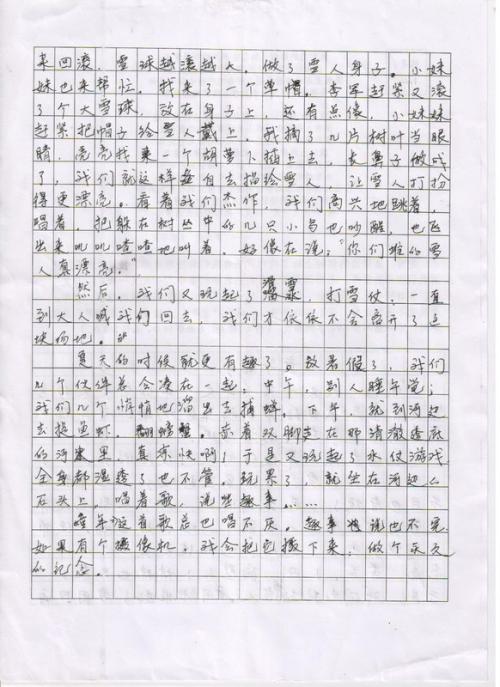 来回滚，雪球越滚越大。做了雪人身子。小妹
妹也来帮忙，找来了一个草帽。李军赶紧又滚
了个大雪球，放在身子上，还有点像，小妹妹
赶紧把帽子给雪人戴上，我摘了几片树叶当眼
睛，亮亮找来一个胡萝卜插上去，长鼻子做成
了，我们就这样各自去描绘雪人，让雪人打扮
得更漂亮。看着我们杰作，我们高兴地跳着，
唱着，把躲在树丛中的几只小鸟也吵醒，也飞
出来叽叽喳喳地叫着，好像在说："你们堆的雪
人真漂亮。"
然后，我们又玩起了滑雪，打雪仗，一直
到大人喊我们回去，我们才依依不舍离开了这
块场地。
夏天的时候就更有趣了。放暑假了，我们
几个伙伴总会凑在一起，中午，别人睡午觉；
我们几个悄悄地溜出去捕蝉。下午，就到河边
去捉鱼虾，翻螃蟹。赤着双脚走在那清澈透底
的河里，真凉快啊！于是又玩起了水仗游戏
全身都湿透了也不管。玩累了，就坐在河边
石头上，唱着歌，说些趣事……
童年这首歌总也唱不厌。趣事也说也不完
如果有个摄像机，我会把它摄下来，做个永久
的纪念。